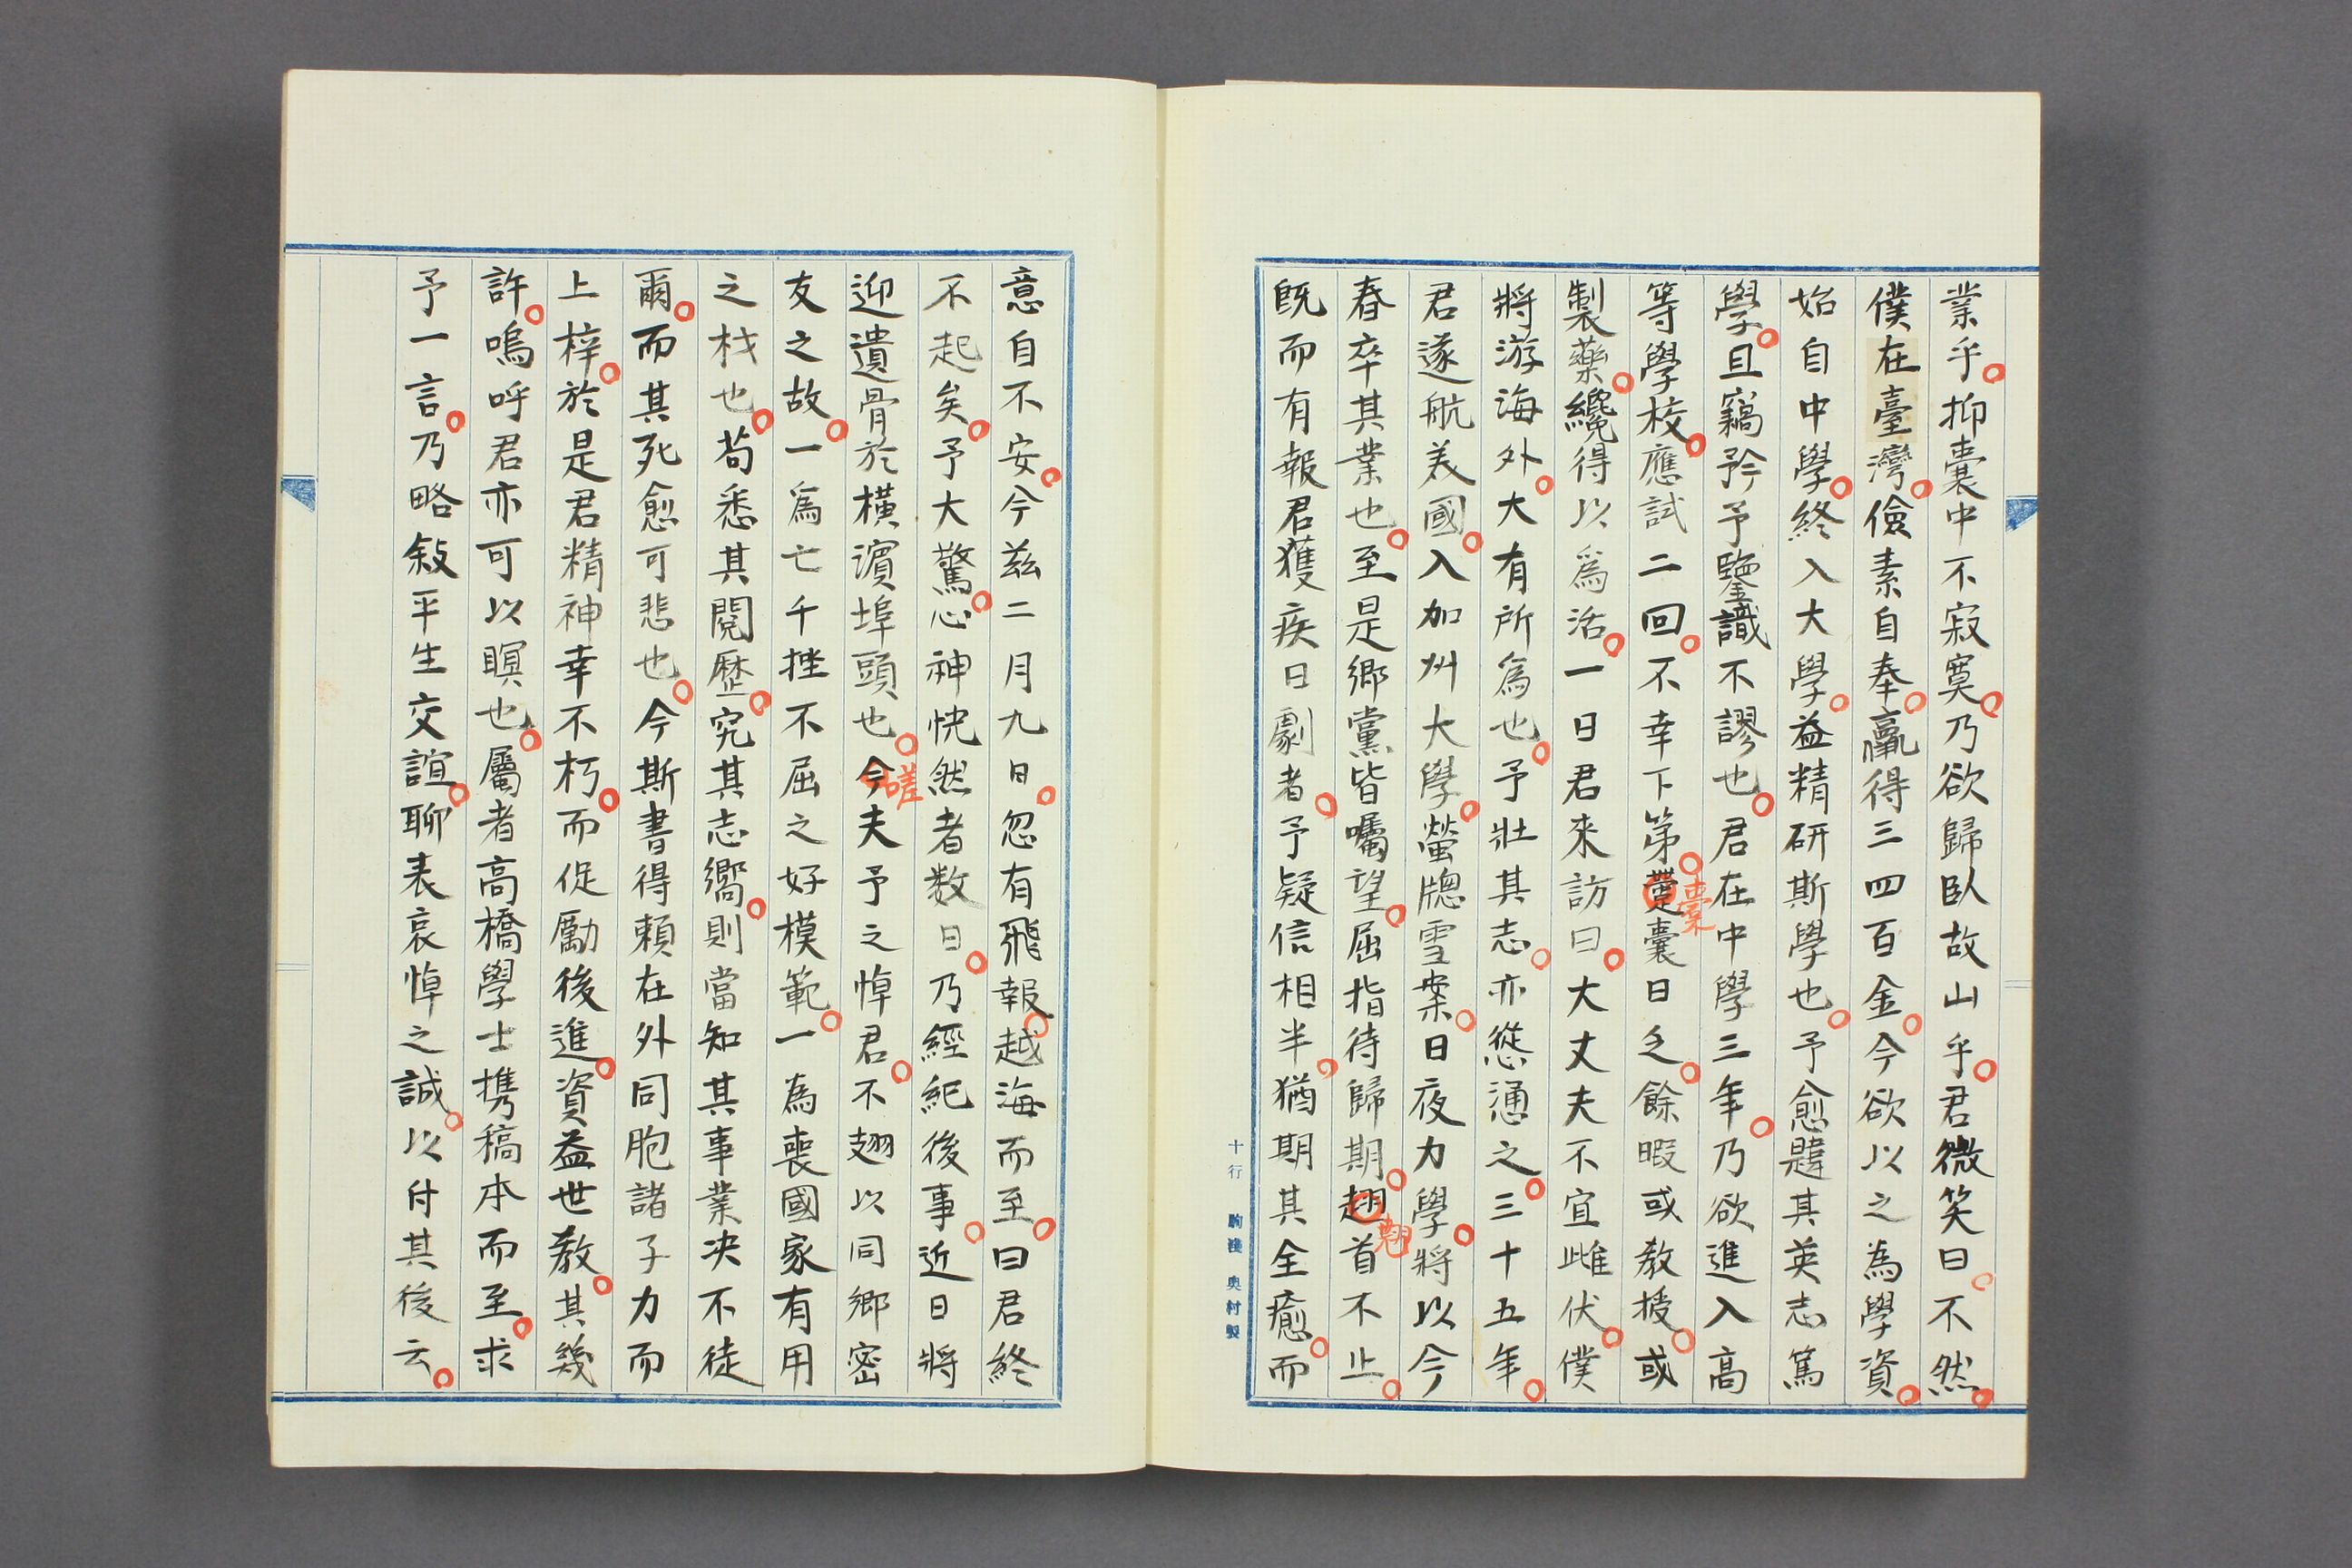 業乎。抑囊中不寂寞。乃欲歸臥故山乎。君微笑曰。不然。
僕在臺灣。儉素自奉。贏得三四百金。今欲以之為學資。
始自中學。終入大學。益精研斯學也。予愈韙其英志篤
學。且竊矜予鑒識不謬也。君在中學三年。乃欲進入高
等學校。應試二回。不幸下第。橐囊日乏。餘暇或教授。或
製藥。纔得以爲活。一日君來訪曰。大丈夫不宜雌伏。僕
將游海外。大有所爲也。予壯其志。亦慫慂之。三十五年。
君遂航美國。入加州大學。螢牕雪案。日夜力學。將以今
春卒其業也。至是鄉黨皆囑望。屈指待歸期。翹首不止。
既而有報君獲疾日劇者。予疑信相半。猶期其全癒。而
十行 駒後 奥村製
意自不安。今茲二月九日。忽有飛報。越海而至。曰君終
不起矣。予大驚。心神怏然者数日。乃經紀後事。近日將
迎遺骨於橫濵埠頭也。嗟夫予之悼君。不翅以同鄉密
友之故。一爲亡千挫不屈之好模範。一為喪國家有用
之材也。苟悉其閱歷。究其志嚮。則當知其事業决不徒
爾。而其死愈可悲也。今斯書得賴在外同胞諸子力而
上梓。於是君精神幸不朽。而促勵後進。資益世教。其幾
許。嗚呼君亦可以瞑也。屬者高橋學士携稿本而至。求
予一言。乃略敍平生交誼。聊表哀悼之誠。以付其後云。